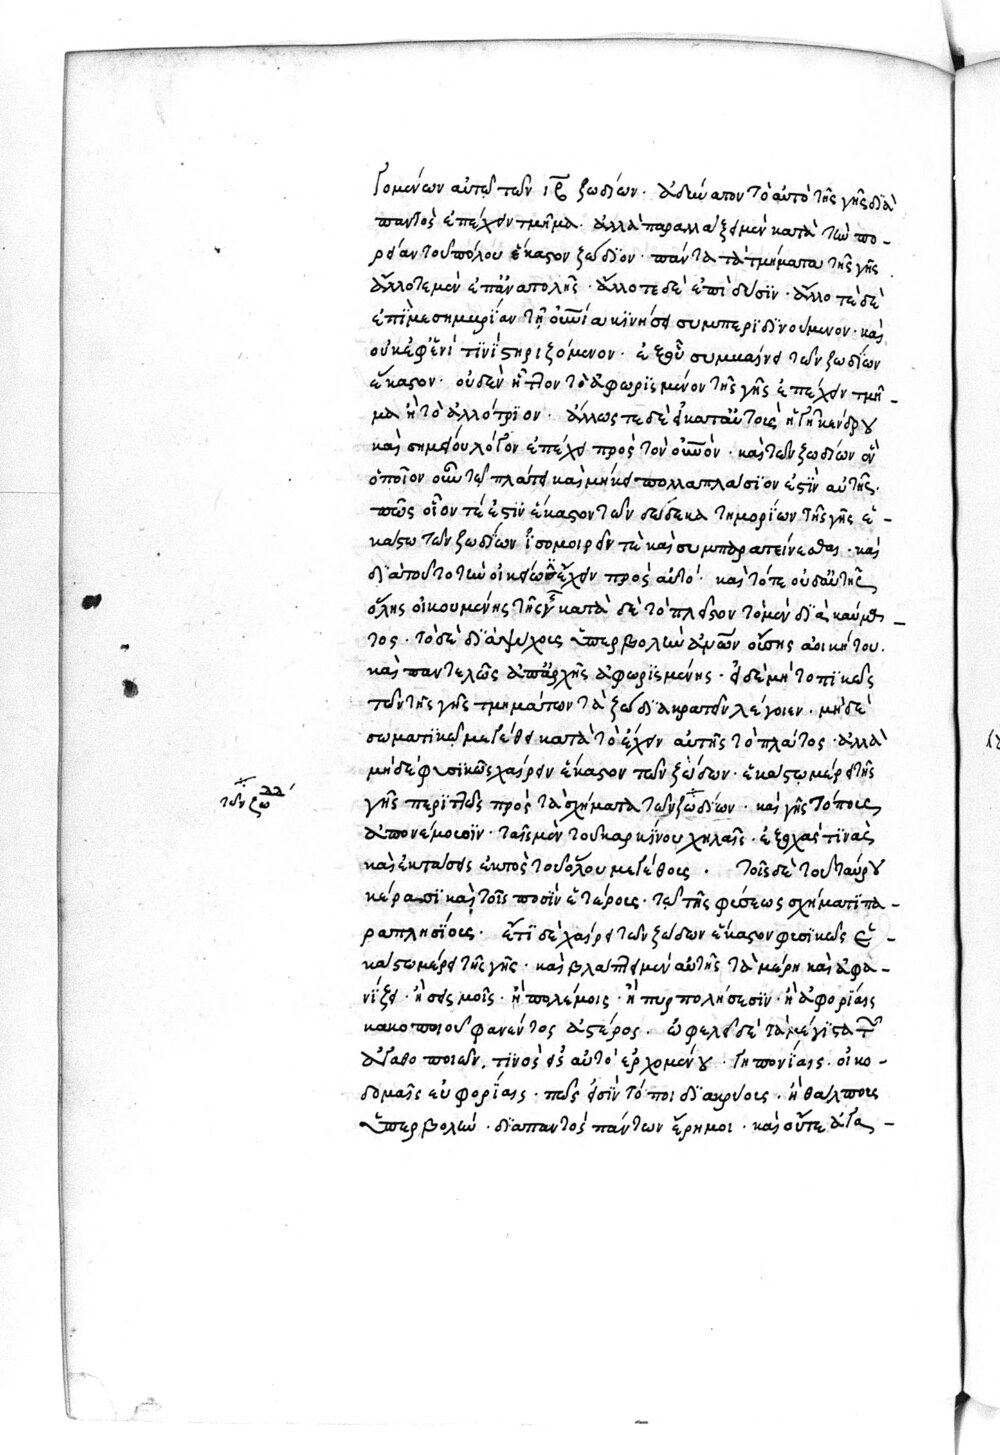 γομένων αὐτῶ τῶν ιβ ζωδίων. ἀδύνατον τὸ αὐτὸ τῆς γῆς διὰ
παντὸς ἐπέχειν τμῆμα. ἀλλὰ παραλλάξει μὲν κατὰ τὴν πο-
ρείαν τοῦ πόλου ἕκαστον ζώδιον. πάντα τὰ τμήματα τῆς γῆς
ἄλλοτε μὲν ἐπ' ἀνατολῆς. ἄλλοτε δὲ ἐπὶ δύσιν. ἄλλοτε δὲ
ἐπὶ μεσημβρίαν τῆ οὐνία κινήσει συμπεριδινούμενον. καὶ
οὐκ ἐφ' ἑνί τινι στηριζόμενον. ἐξ οὗ συμβαίνει τῶν ζωδίων
ἕκαστον. οὐδὲν ἧττον τὸ ἀφωρισμένον τῆς γῆς ἐπέχειν τμῆ-
μα ἢ τὸ ἀλλότριον. ἄλλως τε δὲ εἰ κατ' αὐτοὺς ἡ γῆ κέντρου
καὶ σημείου λόγον ἐπέχει πρὸς τὸν οὐνόν. καὶ τῶν ζωδίων ἓν
ὁποῖον οὖν τῶ πλάτει καὶ μήκει πολλαπλάσιον ἐστὶν αὐτῆς.
πῶς οἷόν τέ ἐστιν ἕκαστον τῶν δώδεκα τημορίων τῆς γῆς ἑ-
κάστω τῶν ζωδίων ἰσομοιρεῖν τε καὶ συμπαρατείνεσθαι. καὶ
διὰ τοῦτο τὴν οἰκείωσιν ἔχειν πρὸς αὐτό. καὶ τότε οὐδ' αὐτῆς
ὅλης οἰκουμένης τῆς γῆς κατὰ δὲ τὸ πλεῖστον τὸ μὲν διὰ καύμα-
τος. τὸ δὲ διὰ ψύχους ὑπερβολὴν ἀνῶν οὔσης ἀοικήτου.
καὶ παντελῶς ἀπ' ἀρχῆς ἀφωρισμένης. εἰ δὲ μὴ τοπικῶς
τῶν τῆς γῆς τμημάτων τὰ ζώδια κρατεῖν λέγοιεν. μηδὲ
σωματικῶ μεγέθει κατὰ τὸ ἔχειν αὐτῆς τὸ πλάτος. ἀλλὰ
μηδὲ φυσικῶς χαίρειν ἕκαστον τῶν ζώδων. ἑκάστω μέρει τῆς
γῆς περιττῶς πρὸς τὰ σχήματα τῶν ζωδίων. καὶ γῆς τόπους
ἀπονέμουσιν. ταῖς μὲν τοῦ καρκίνου χηλαῖς. ἐξοχάς τινας
καὶ ἐκτάσεις ἐκτὸς τοῦ ὅλου μεγέθους. τοῖς δὲ τοῦ ταύρου
κέρασι καὶ τοῖς ποσὶν ἑτέρους. τῶ τῆς φύσεως σχήματι πα-
ραπλησίους. ἔτι δὲ χαίρει τῶν ζώδων ἕκαστον φυσικῶς ἑ-
κάστω μέρει τῆς γῆς. καὶ βλάπτει μὲν αὐτῆς τὰ μέρη καὶ ἀφα-
νίζει. ἢ σεισμοῖς. ἢ πολέμοις. ἢ πυρπολήσεσιν. ἢ ἀφορίαις
κακοποιοῦ φανέντος ἀστέρος. ὠφελεῖ δὲ τὰ μέγιστα τοῦ
ἀγαθοποιῶν, τινὸς εἰς αὐτὸ ἐρχομένου. γηπονίαις. οἰκο-
δομαῖς εὐφορίαις. πῶς εἰσὶν τόποι διὰ κρύους. ἢ θάλπους
ὑπερβολὴν. διαπαντὸς πάντων ἔρημοι. καὶ οὔτε ἀγα-
τῶν ζω